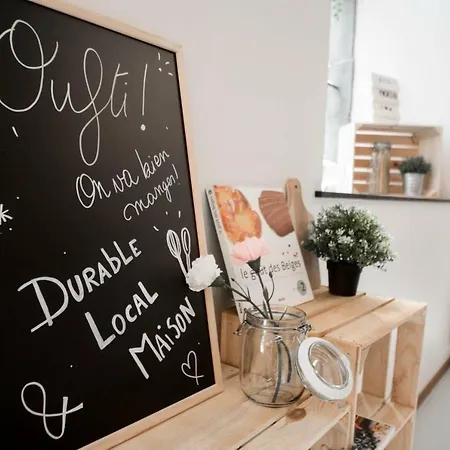 Oufti!
On va bien
manger!
DURABLE
LOCAL
MAISON
&
le goût des Belges